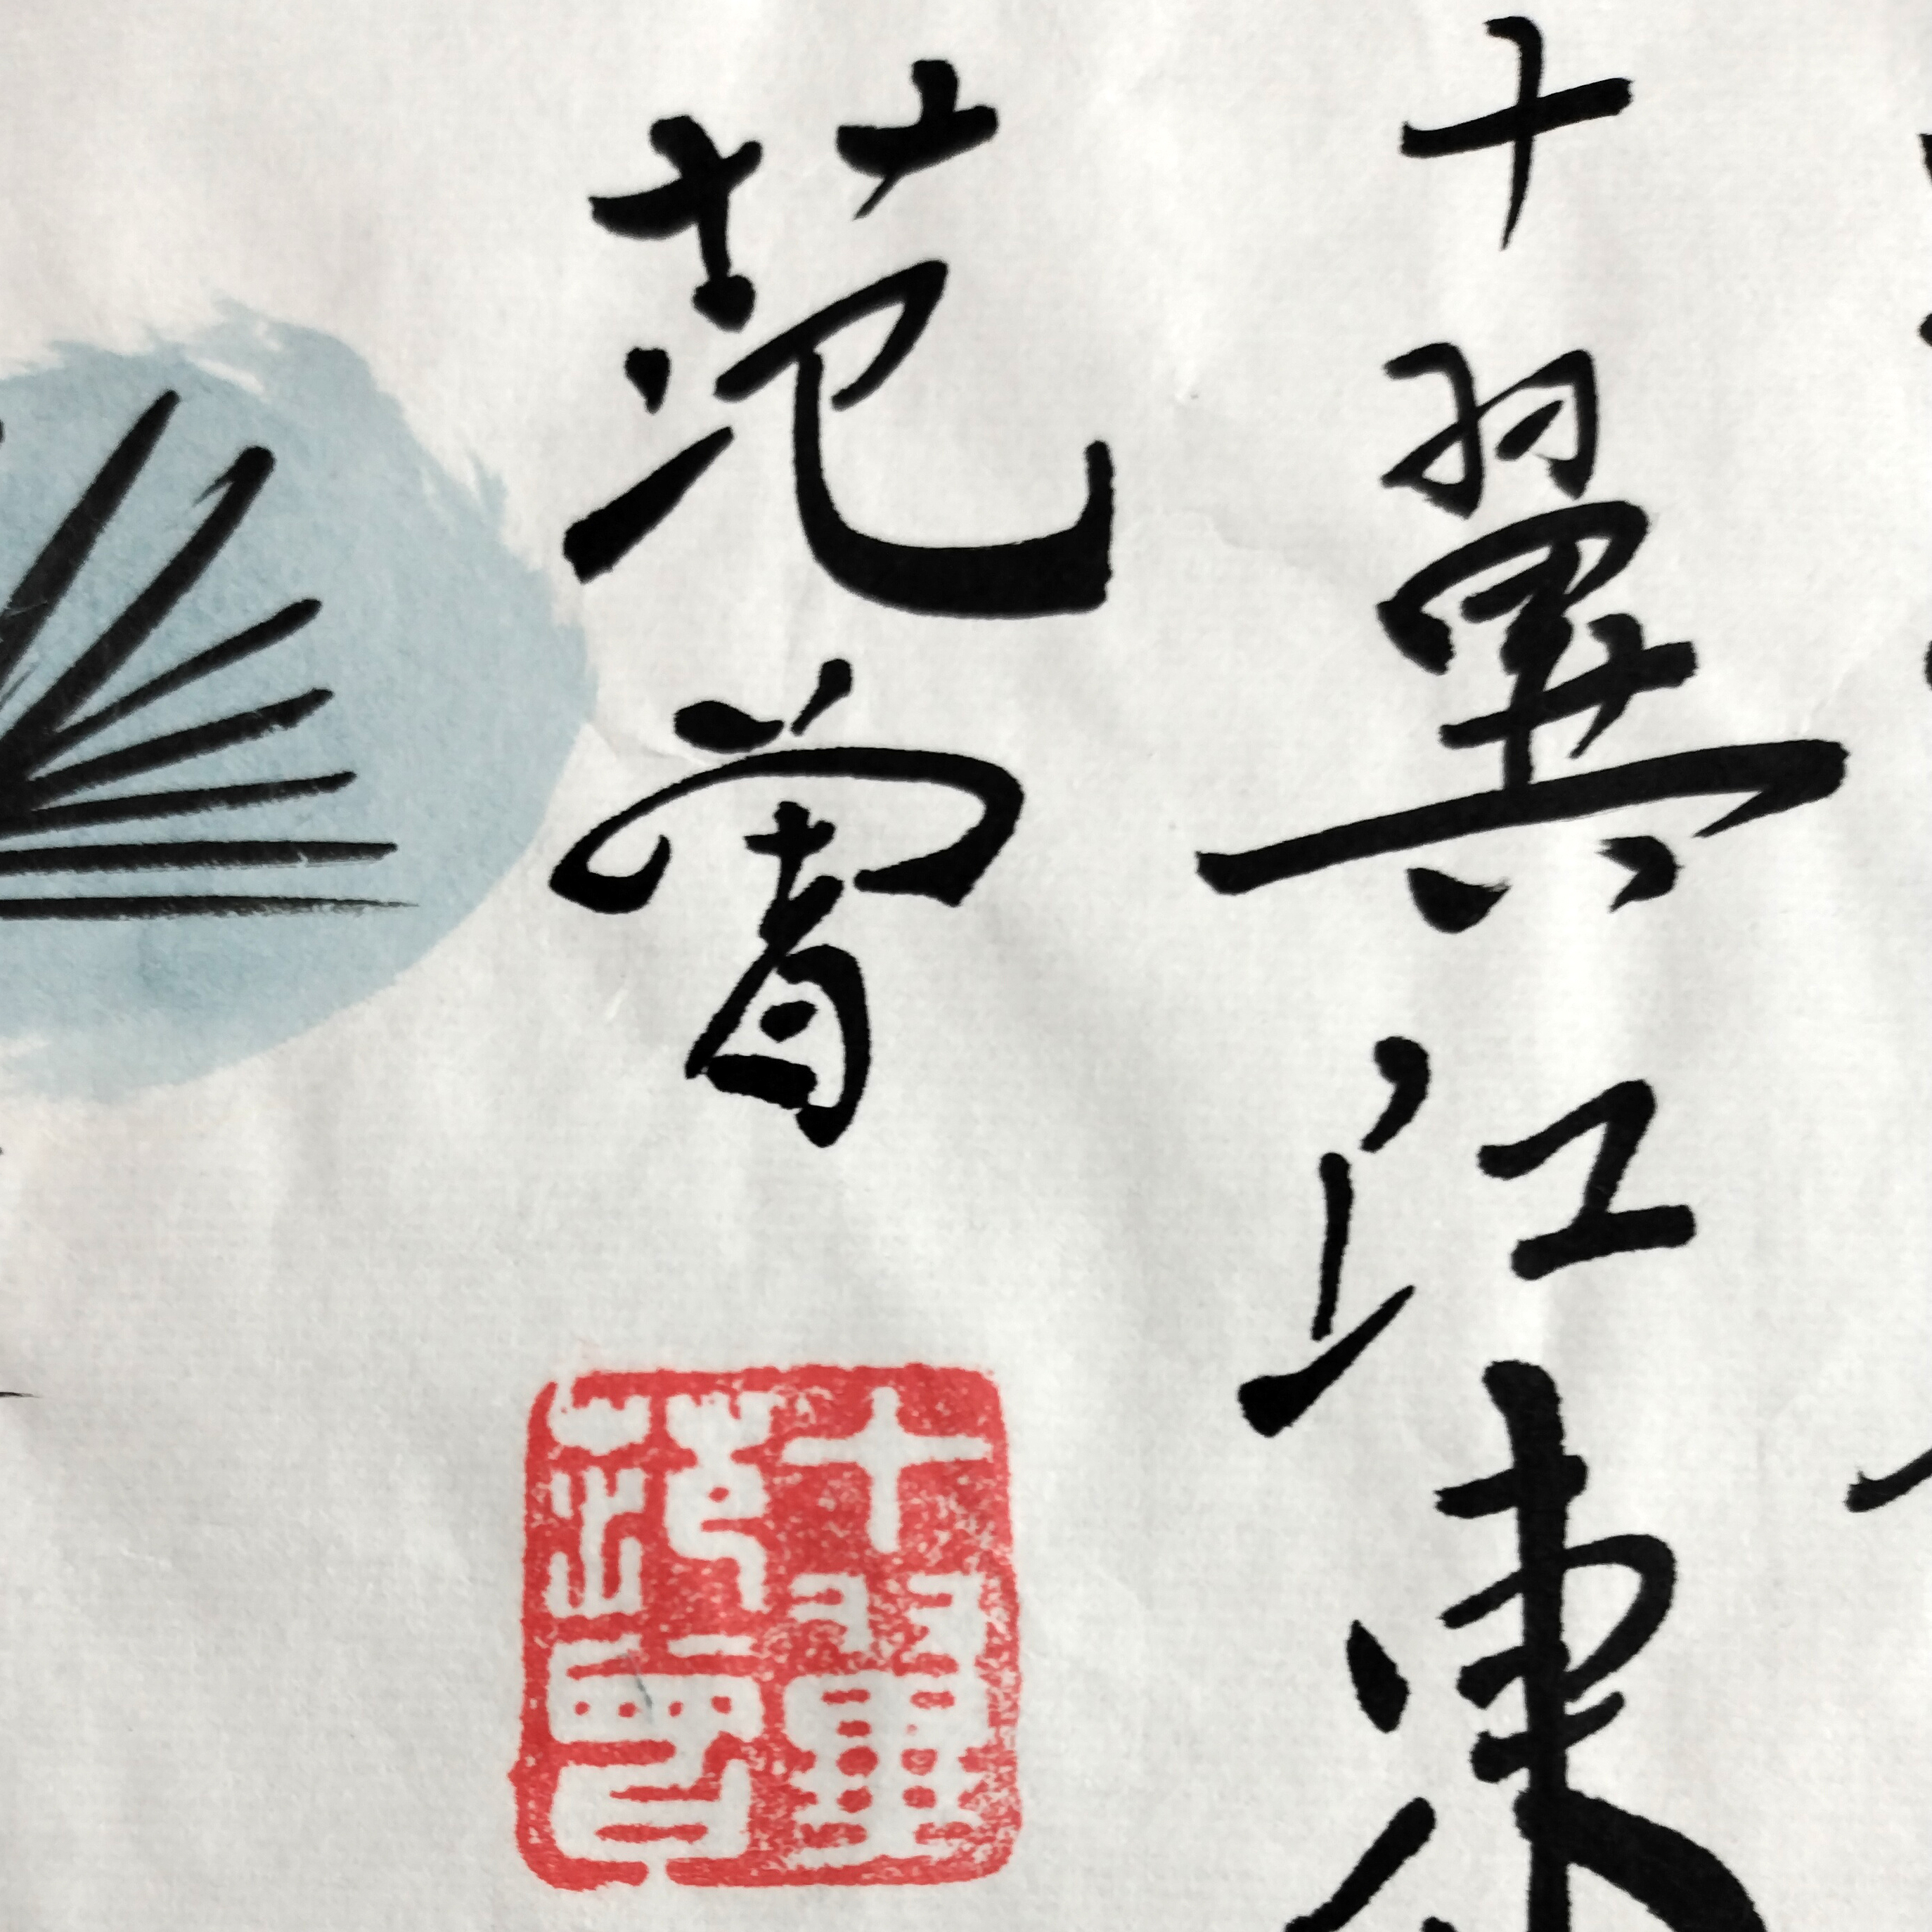 十翼江東
范曾
十翼范曾